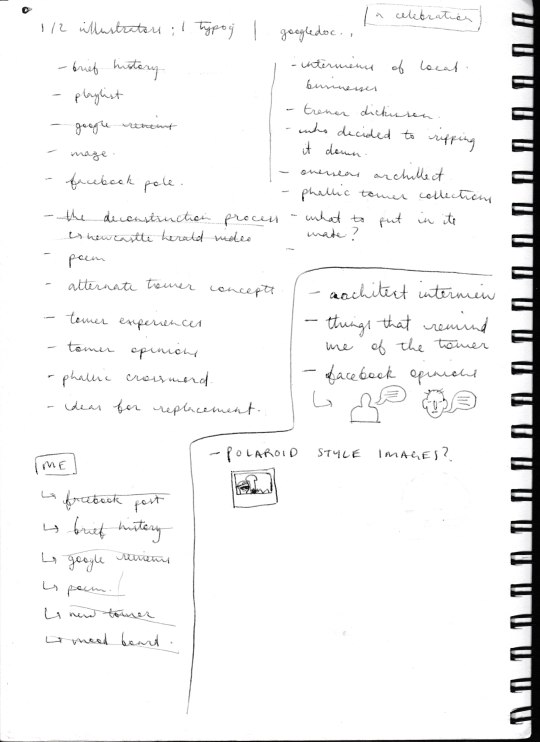 1/2 illustrators; 1 typog | googledoc..
a celebration
- brief history
- playlist
- google reviews
- maze.
- facebook pole.
- the deconstruction process
↳ newcastle herald video
- poem
- alternate tower concepts
- tower experiences
- tower opinions
- phallic crossword.
- ideas for replacement.
- interviews of local
businesses
- trevor dickinson.
- who decided to ripping
it down.
- overseas architect
- phallic tower collections
- what to put in its
wake?
-
- architect interview
- things that remind
me of the tower
- facebook opinions
↳
- POLAROID STYLE IMAGES?
ME
↳ facebook post
↳ brief history
↳ google reviews
↳ poem.
↳ new tower
↳ mood board.